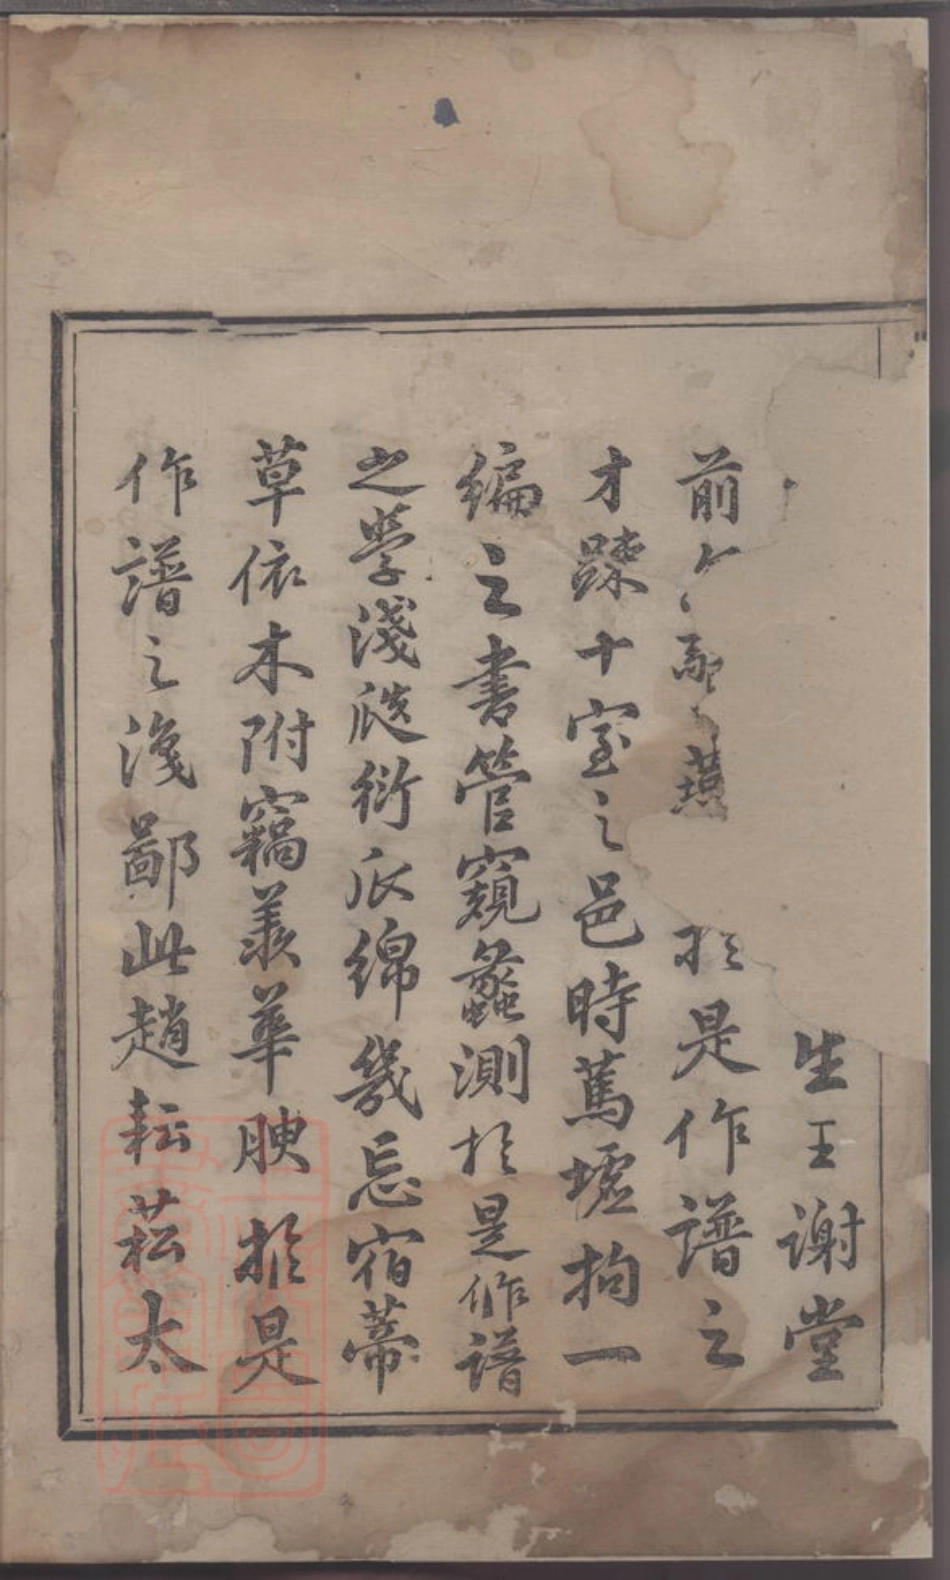 生王謝堂
前 燕 於是作譜之
才踈十室之邑時蔦墟拘一
編之書管窺蠡測於是作譜
之學淺瓞衍瓜綿幾忘宿蒂
草依木附竊羨華腴於是
作譜之淺鄙此趙耘菘太